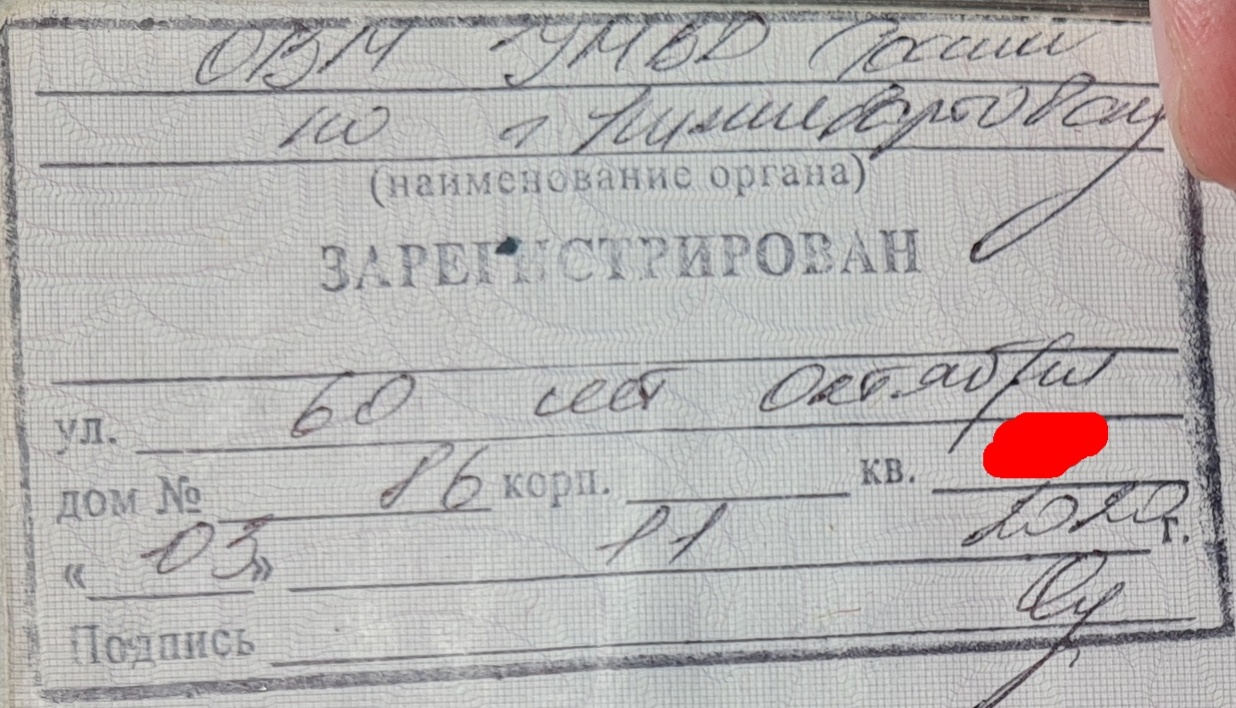 ОВМ УМВД России
по г. Нижневартовску
(наименование органа)
ЗАРЕГИСТРИРОВАН
ул. 60 лет Октября
дом № 86 корп. кв.
« 03 » 11 2020 г.
Подпись